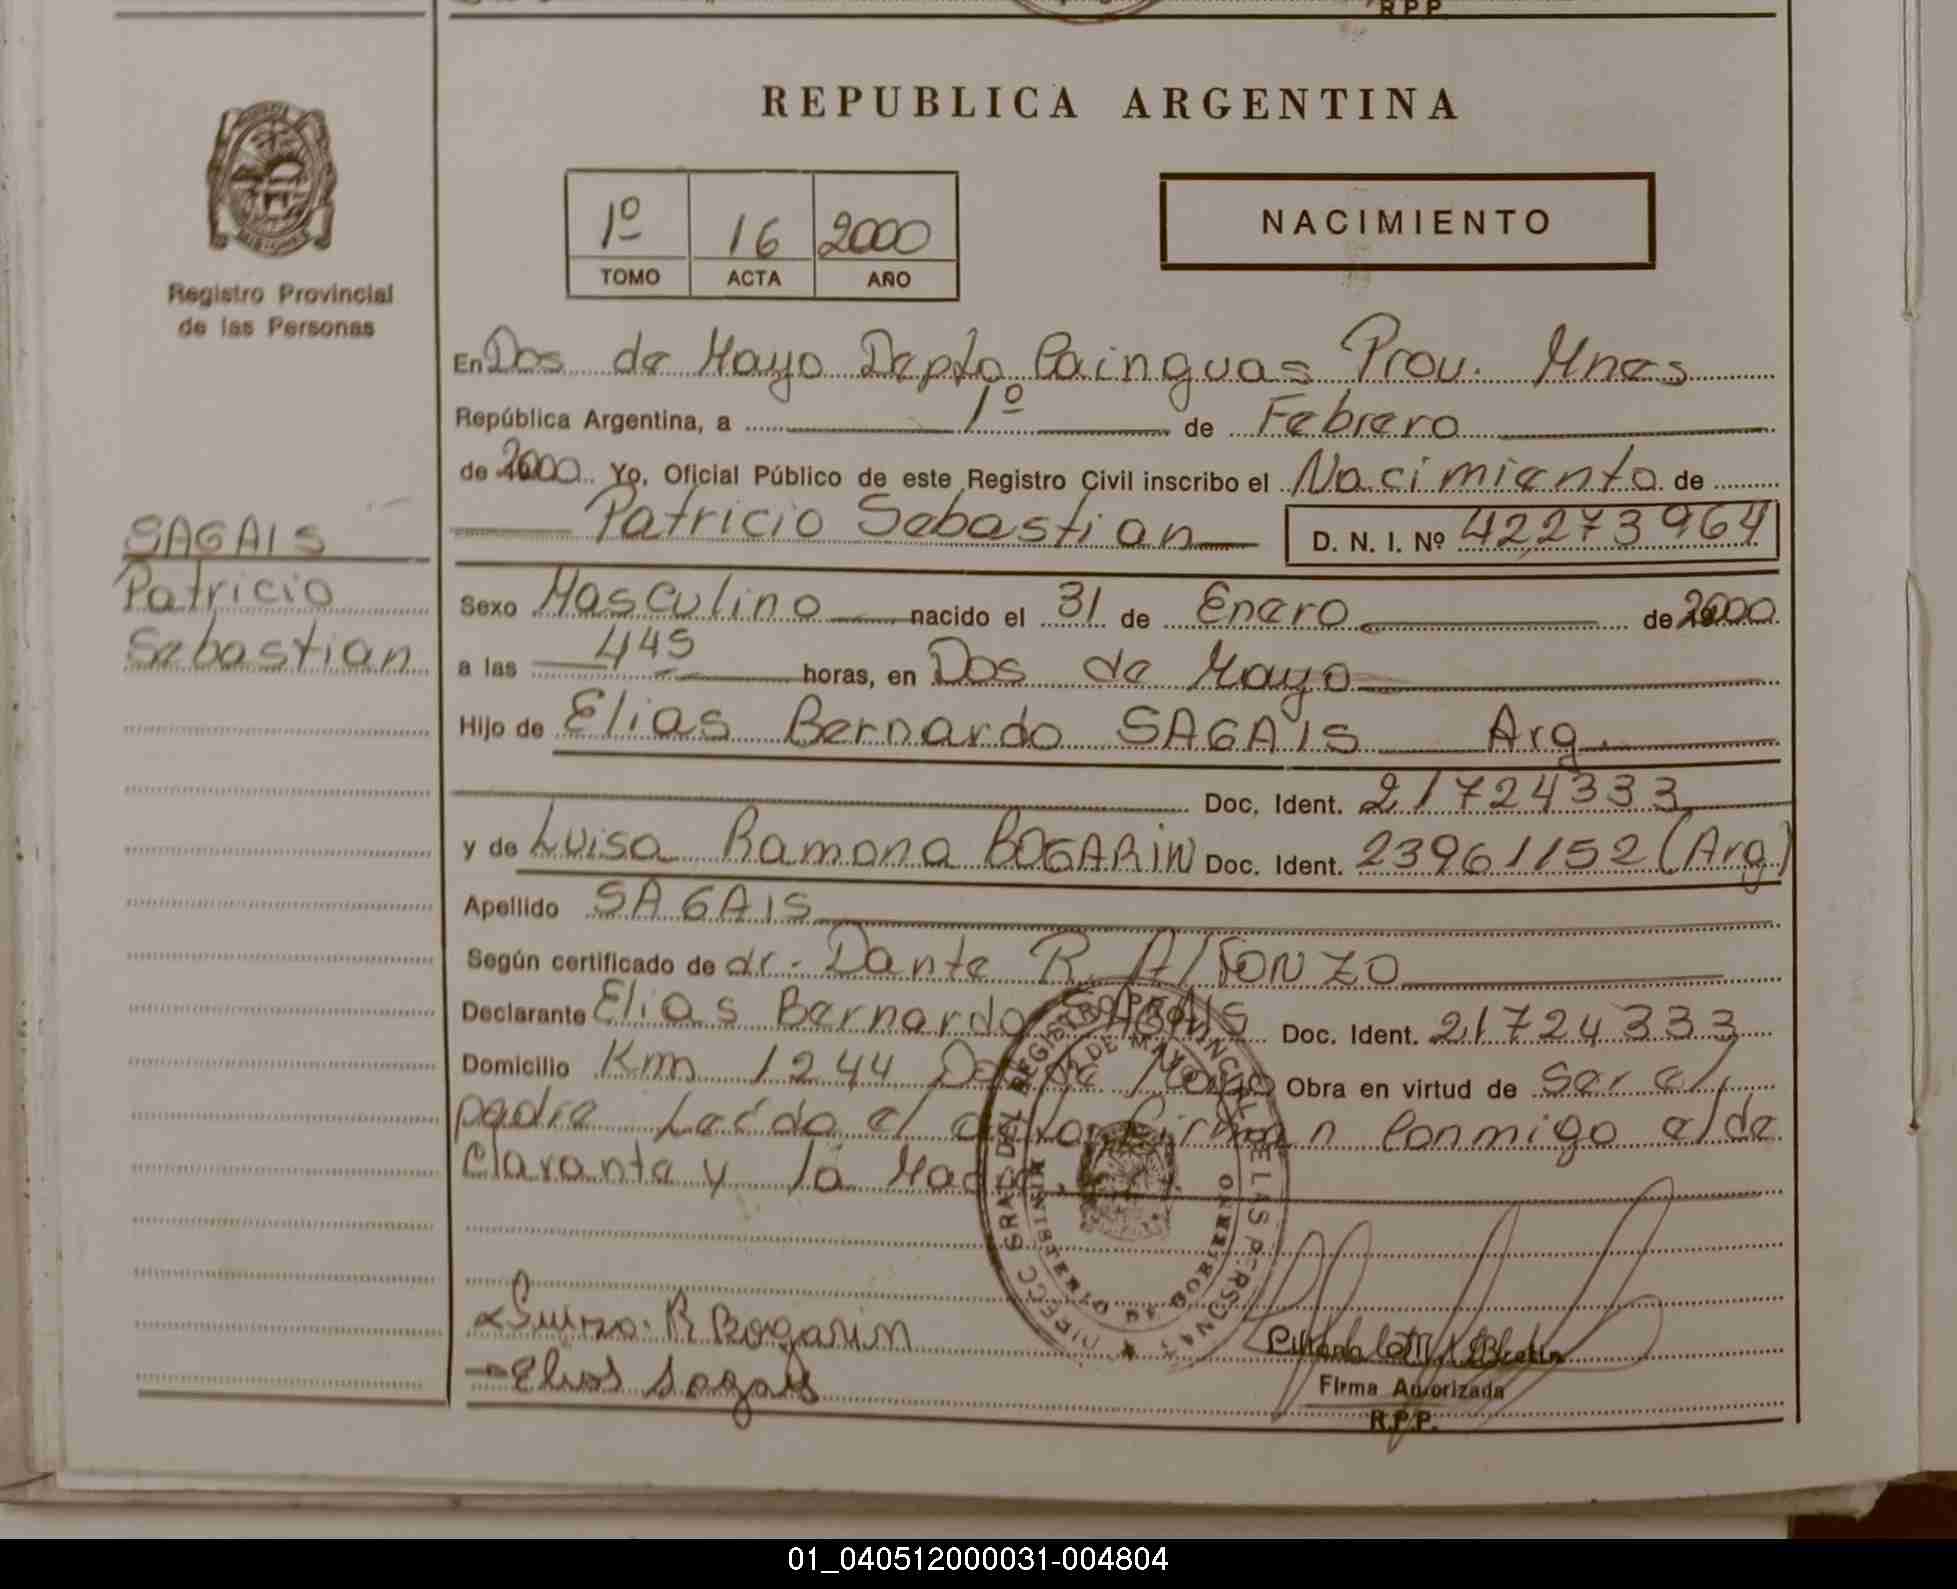 RPP
REPUBLICA ARGENTINA
1º 16 2000
TOMO ACTA AÑO
NACIMIENTO
MISIONES
Registro Provincial
de las Personas
En Dos de Mayo Depto Cainguas Prov. Mnes
República Argentina, a 1º de Febrero
de 2000 Yo, Oficial Público de este Registro Civil inscribo el Nacimiento de
Patricio Sebastian D. N. I. Nº 42273964
SAGAIS
Patricio
Sebastian
Sexo Masculino nacido el 31 de Enero de 2000
a las 445 horas, en Dos de Mayo
Hijo de Elias Bernardo SAGAIS Arg.
Doc. Ident. 21724333
y de Luisa Ramona BOGARIN Doc. Ident. 23961152 (Arg)
Apellido SAGAIS
Según certificado de dr. Dante R. AlFONZO
Declarante Elias Bernardo SAGAIS Doc. Ident. 21724333
Domicilio Km 1244 Dos de Mayo Obra en virtud de ser el
padre Leída el acta firman Conmigo el de
Claranta y la Madre.
DIRECC GRAL DEL REGISTRO PROVINCIAL DE LAS PERSONAS
2 DE MAYO
MINISTERIO DE GOBIERNO
Luisa R Bogarin
Elias Sagais
Firma Autorizada
R.P.P.
01_040512000031-004804